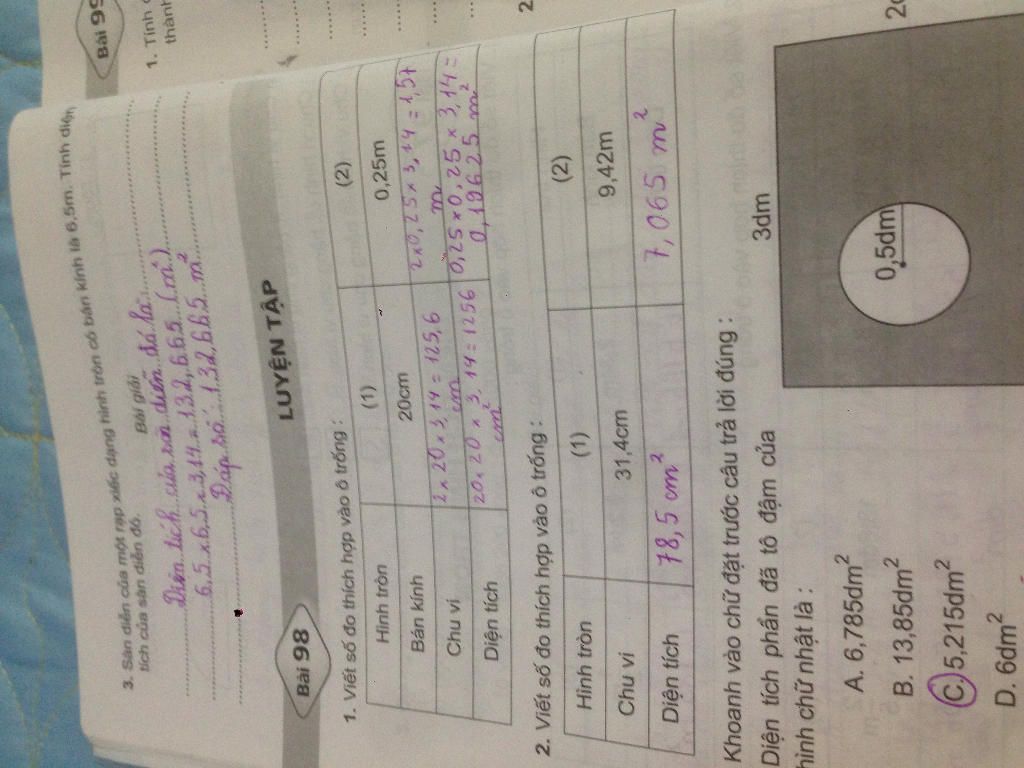 Bài 99
1. Tính
thành
3. Sàn diễn của một rạp xiếc dạng hình tròn có bán kính là 6,5m. Tính diện
tích của sàn diễn đó.
Bài giải
Diện tích của sàn diễn đó là:
6,5 x 6,5 x 3,14 = 132,665 (m²)
Đáp số: 132,665 m²
Bài 98
LUYỆN TẬP
1. Viết số đo thích hợp vào ô trống :
Hình tròn (1) (2)
Bán kính 20cm 0,25m
Chu vi 2 x 20 x 3,14 = 125,6 cm 2 x 0,25 x 3,14 = 1,57 m
Diện tích 20 x 20 x 3,14 = 1256 cm² 0,25 x 0,25 x 3,14 = 0,19625 m²
2. Viết số đo thích hợp vào ô trống :
Hình tròn (1) (2)
Chu vi 31,4cm 9,42m
Diện tích 78,5 cm² 7,065 m²
Khoanh vào chữ đặt trước câu trả lời đúng :
Diện tích phần đã tô đậm của
hình chữ nhật là :
A. 6,785dm²
B. 13,85dm²
C. 5,215dm²
D. 6dm²
3dm
0,5dm
2